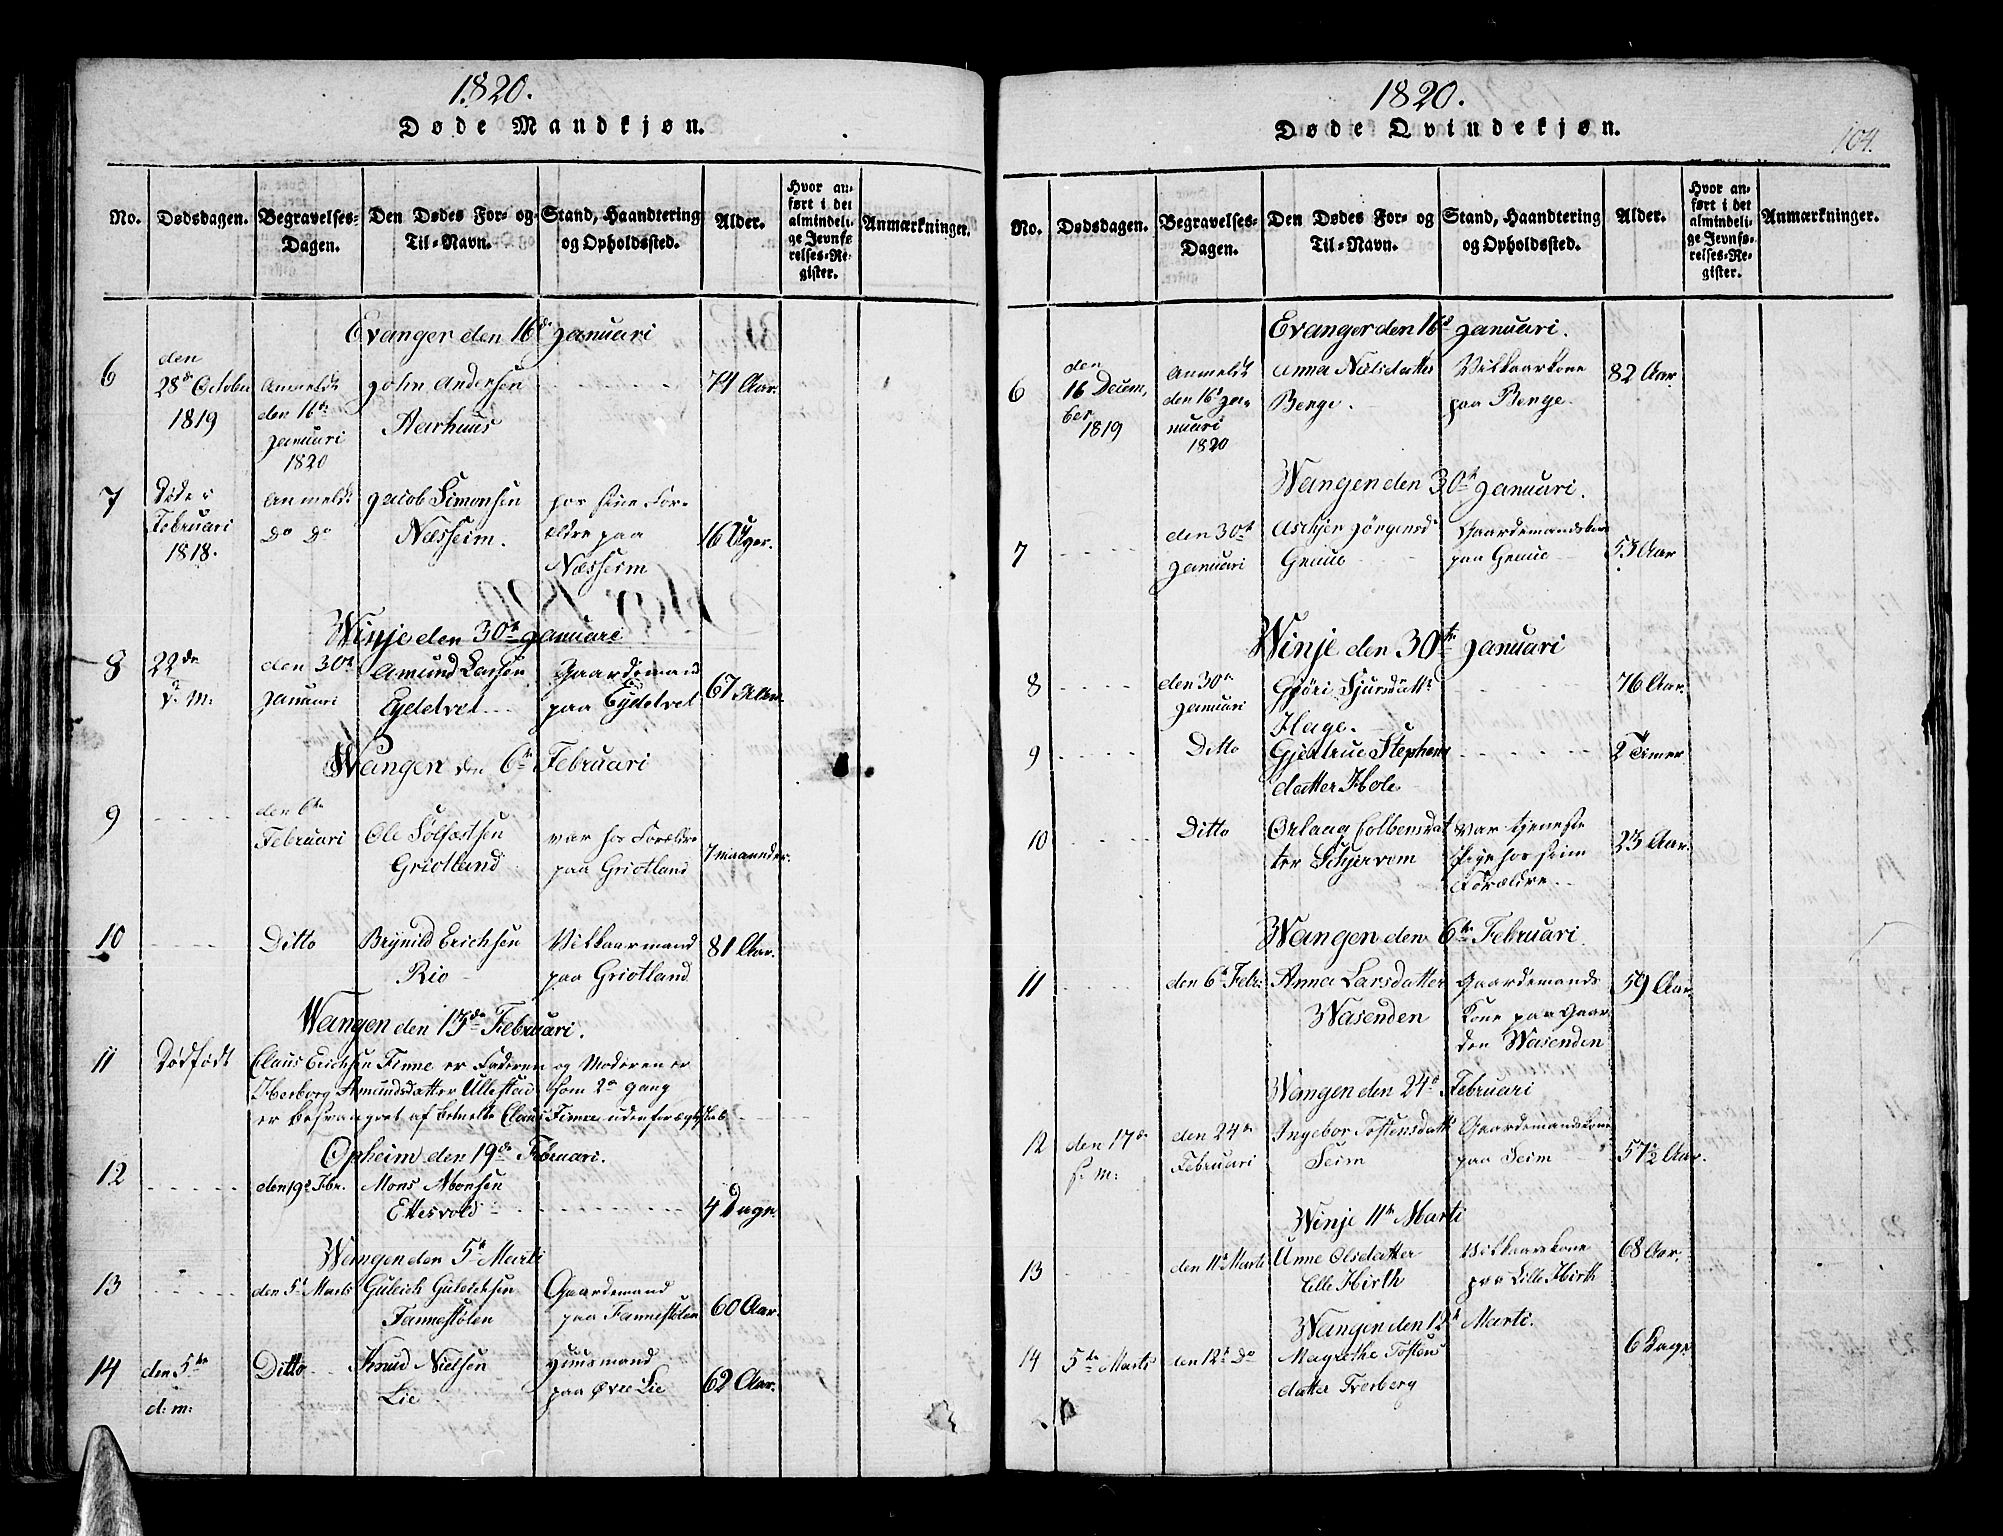 1820.
Døde Mandkjøn.
No.
Dødsdagen.
Begravelses-
Dagen.
Den Dødes For- og
Til-Navn.
Stand, Haandtering
og Opholdssted.
Alder.
Hvor an-
ført i det
almindeli-
ge Jevnfø
relses-Re-
gister.
Anmærkninger.
Evanger den 16de Januari
6
den
28de October
1819
Anmeldt
den 16de
Januari
1820
John Andersen
Aarhuus
74 Aar.
7
Døde i
Februari
1818.
Anmeldt
do do
Jacob Simonsen
Næsheim.
hos sine For-
ældre paa
Næsheim
16 Uger.
Winje den 30te Januari
8
22de
d. M:
den 30te
Januari
Amund Larsen
Gaardemand
paa
67 Aar.
Wangen den 6te Februari
9
den 6te
Februari
Ole Sølfæstsen
Griotland
var hos Forældre
paa Griotland
7 maaneder.
10
Ditto
Brynild Erichsen
Rio
Vilkaarmand
paa Griotland
81 Aar.
Wangen den 13de Februari.
11
Dødfødt
Claus Erichsen Finne er Faderen og Moderen er
Herborg Amundsdatter Ullestad som 2de gang
er besvangret af bemelte Claus Finne udenfor ægteskab
Opheim den 19de Februari.
12
den 19de Fbr.
Mons
4 Dage.
Wangen den 5te Marti
13
den 5te Marts
Guleich Guleichsen
Fannestølen
Gaardemand
paa Fannestølen
60 Aar.
14
den 5te
d: m:
Ditto
Knud Nielsen
Lie
Huusmand
paa Øvre Lie
62 Aar.
1820.
Døde Qvindekjøn.
104.
No.
Dødsdagen.
Begravelses-
Dagen.
Den Dødes For- og
Til-Navn.
Stand, Haandtering
og Opholdssted.
Alder.
Hvor an-
ført i det
almindeli-
ge Jevnfø-
relses-Re-
gister.
Anmærkninger.
Evanger den 16de Januari.
6
den
16 Decem,
ber
1819
Anmeldt
den 16de Ja-
nuari
1820
Anna Nielsdatter
Berge.
Vilkaarkone
paa Berge.
82 Aar.
Wangen den 30te Januari.
7
den 30te
Januari
Gaardemandskone
paa
53 Aar
Winje den 30te Januari
8
den 30te
Januari
Gjøri Sjursdattr
Hage.
76 Aar.
9
Ditto
Gjertrue Stephens
datter Hole
2 Timer
10
Ditto
Orlaug Colbensdat
ter Schjervem
var tjeneste
Pige hos sine
Forældre.
23 Aar.
Wangen den 6te Februari.
11
den 6te Febr:
Anna Larsdatter
Wasenden
Gaardemands
Kone paa Gaar
den Wasenden
59 Aar.
Wangen den 24de Februari
12
den 17de
s. m:
den 24de
Februari
Ingebor Tostensdatter
Seim
Gaardemandskone
paa Seim
57½ Aar.
Winje 11te Marti
13
den 11te Marti
Unne Olsdatter
Lille Hirth
Vilkaarskone
paa Lille Hirth
68 Aar.
Wangen den 12te Marti.
14
5te Marts
den 12te do
Magrethe Tostens
datter
6 Dage